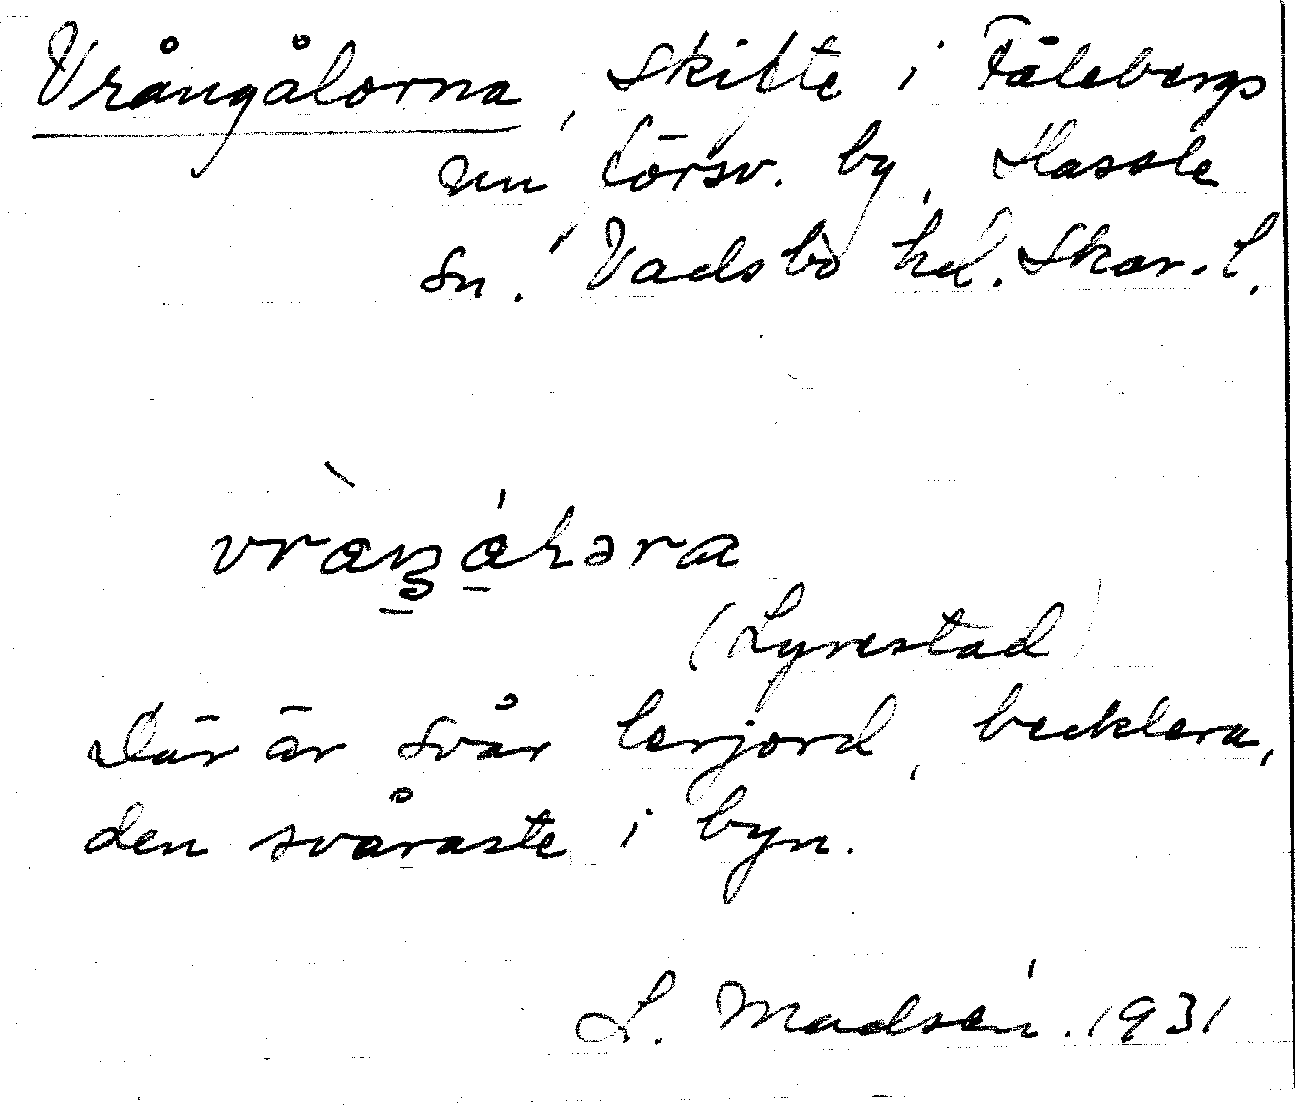 Vrångålorna, skifte i Fålebergs
nu försv. by, Hassle
sn. Vadsbo hd. Skar. l.
(Lyrestad)
Där är svår lerjord, becklera,
den svåraste i byn.
L. Madsén. 1931